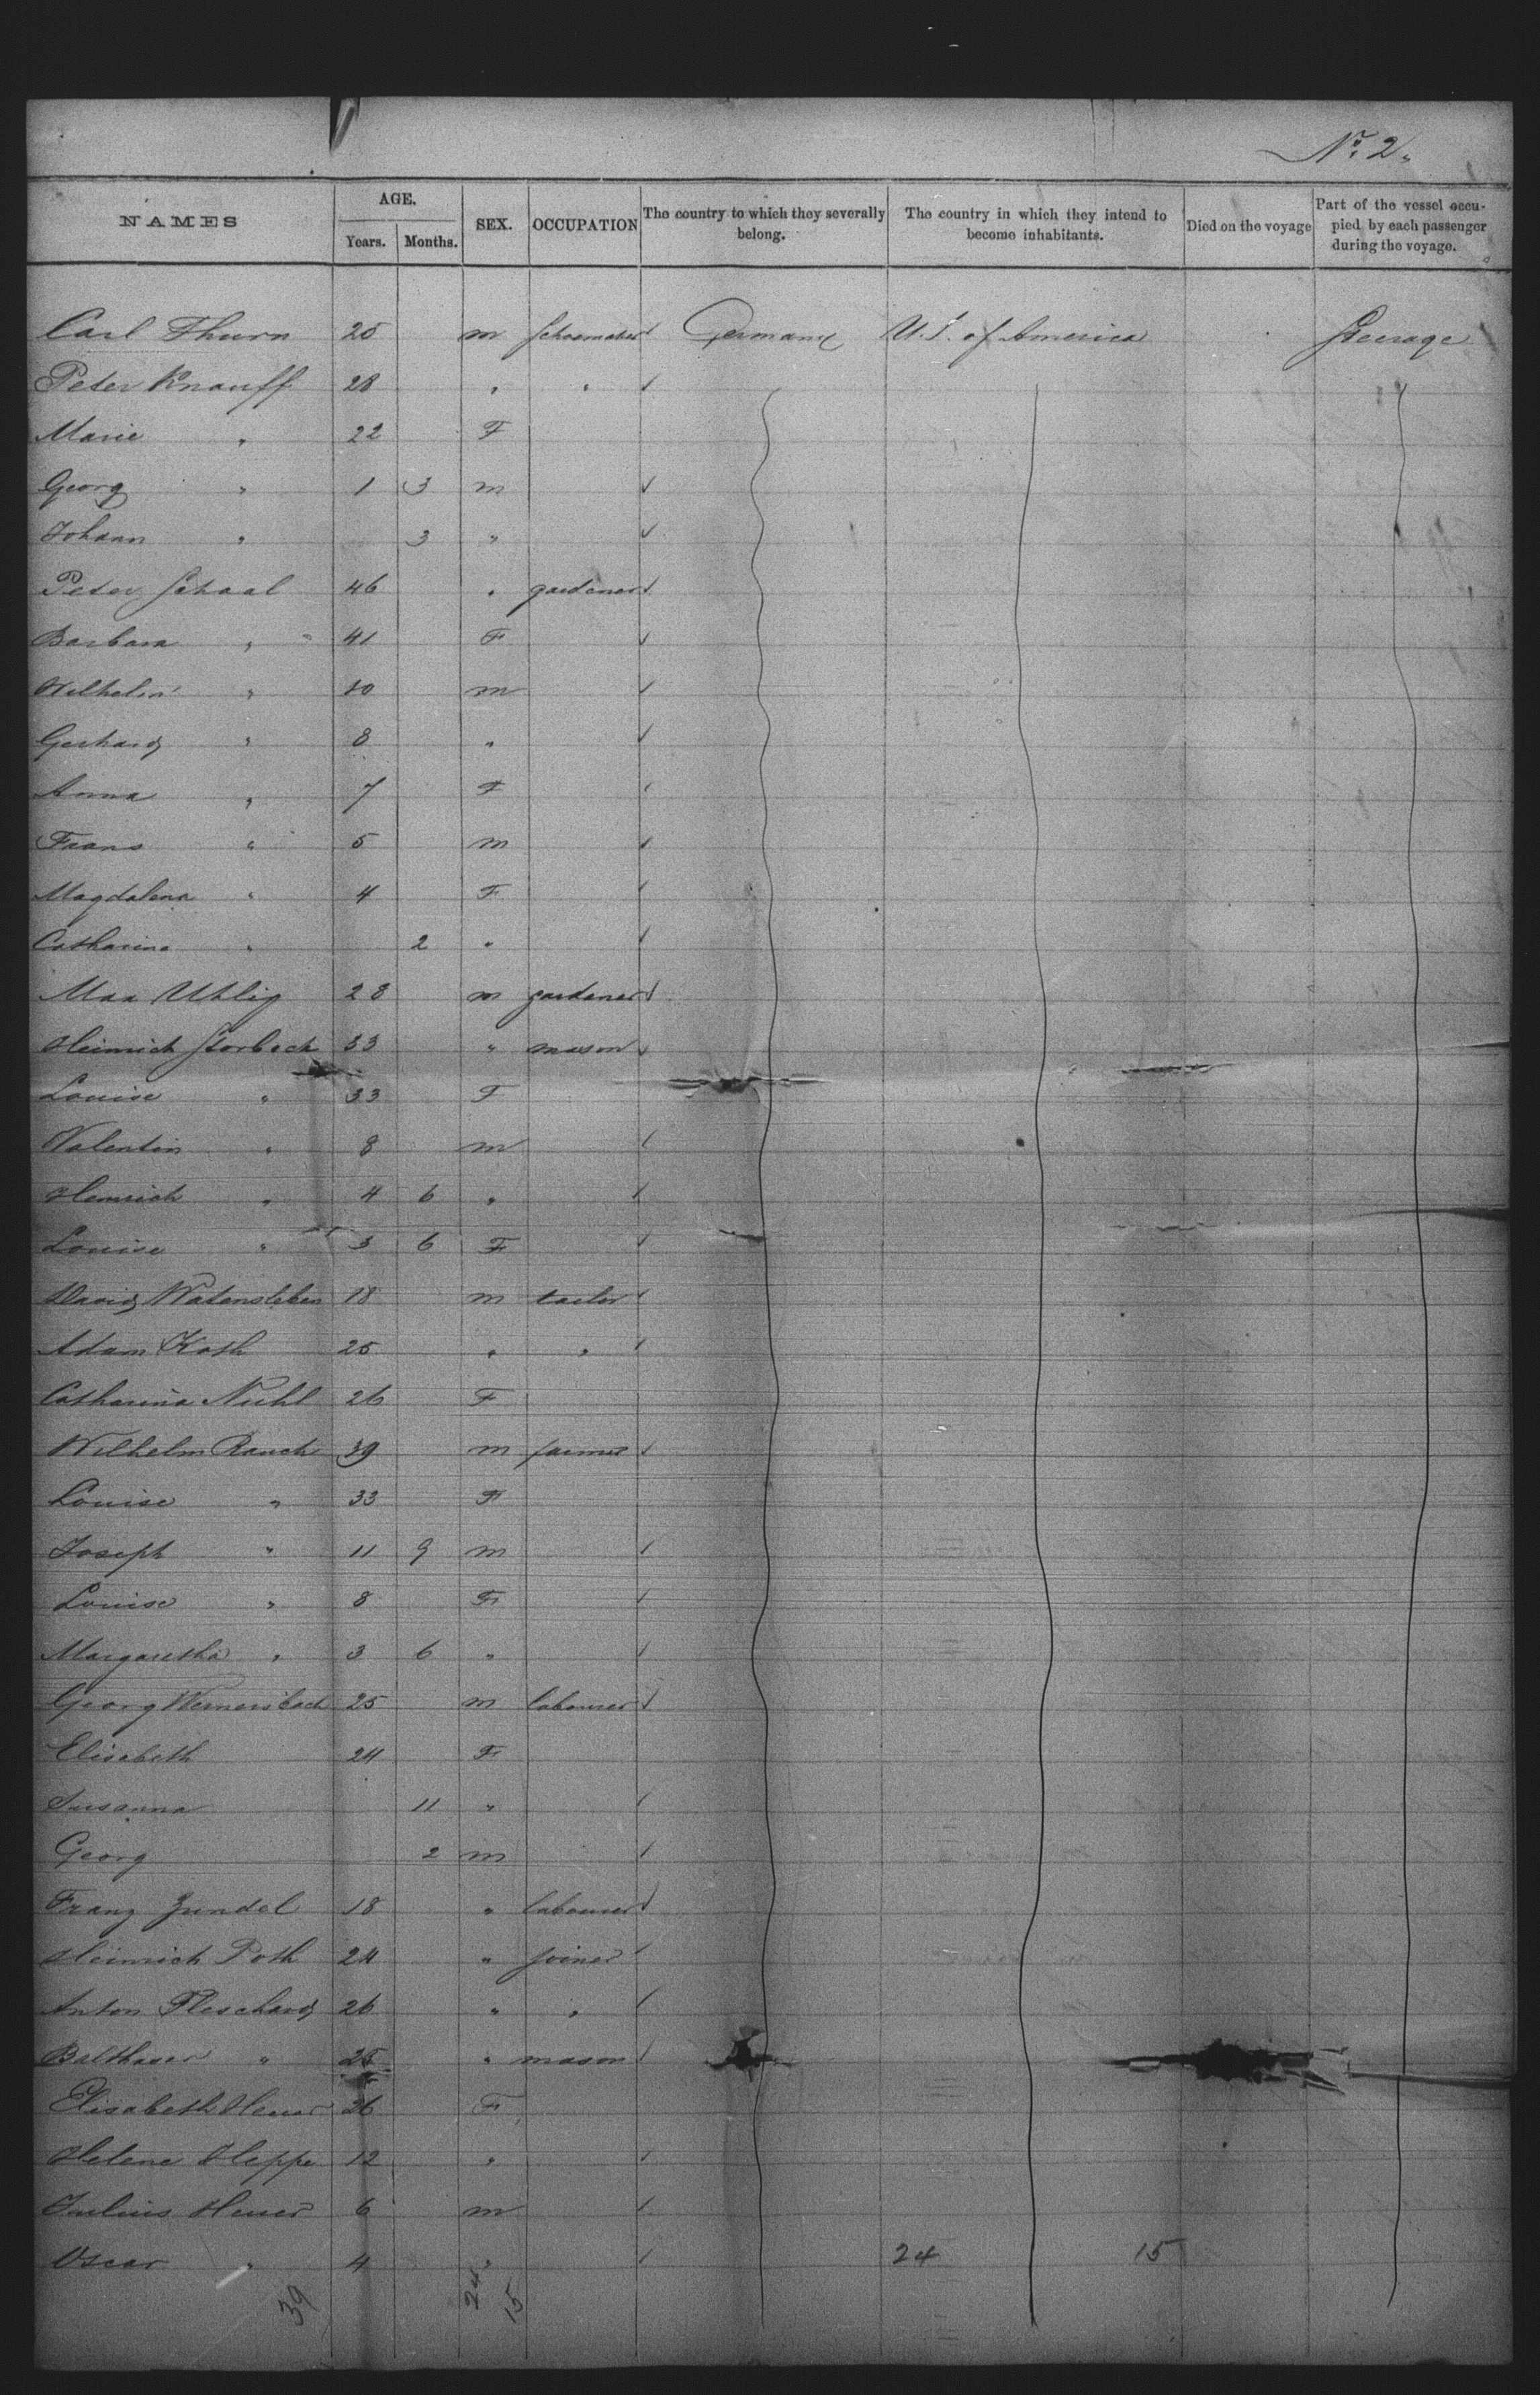 No. 2.
NAMES AGE. Years. Months. SEX. OCCUPATION The country to which they severally belong. The country in which they intend to become inhabitants. Died on the voyage Part of the vessel occupied by each passenger during the voyage.
Carl Thurn 25 m Schoemaker Germany U.S. of America Steerage
Peter Knauff 28 " "
Marie " 22 F
Georg " 1 3 m
Johann " 3 "
Peter Schaal 46 " gardener
Barbara " 41 F
Wilhelm " 10 m
Gerhard " 8 "
Anna " 7 F
Frans " 5 m
Magdalena " 4 F
Catharina " 2 "
Max Uhlig 28 m gardener
Heinrich Storbeck 33 " mason
Louise " 33 F
Valentin " 8 m
Heinrich " 4 6 "
Louise " 3 6 F
David Watensleben 18 m tailor
Adam Koth 25 " "
Catharina Nuhl 26 F
Wilhelm Rauch 39 m farmer
Louise " 33 F
Joseph " 11 9 m
Louise " 8 F
Margaretha " 3 6 "
Georg Wernersbach 25 m labourer
Elisabeth 24 F
Susanna 11 "
Georg 2 m
Franz Zundel 18 " labourer
Heinrich Poth 24 " joiner
Anton Fleschard 26 " "
Balthaser " 25 " mason
Elisabeth Heuer 26 F
Helene Heppe 12 "
Julius Heuer 6 m
Oscar " 4 "
24 15
39 24 15